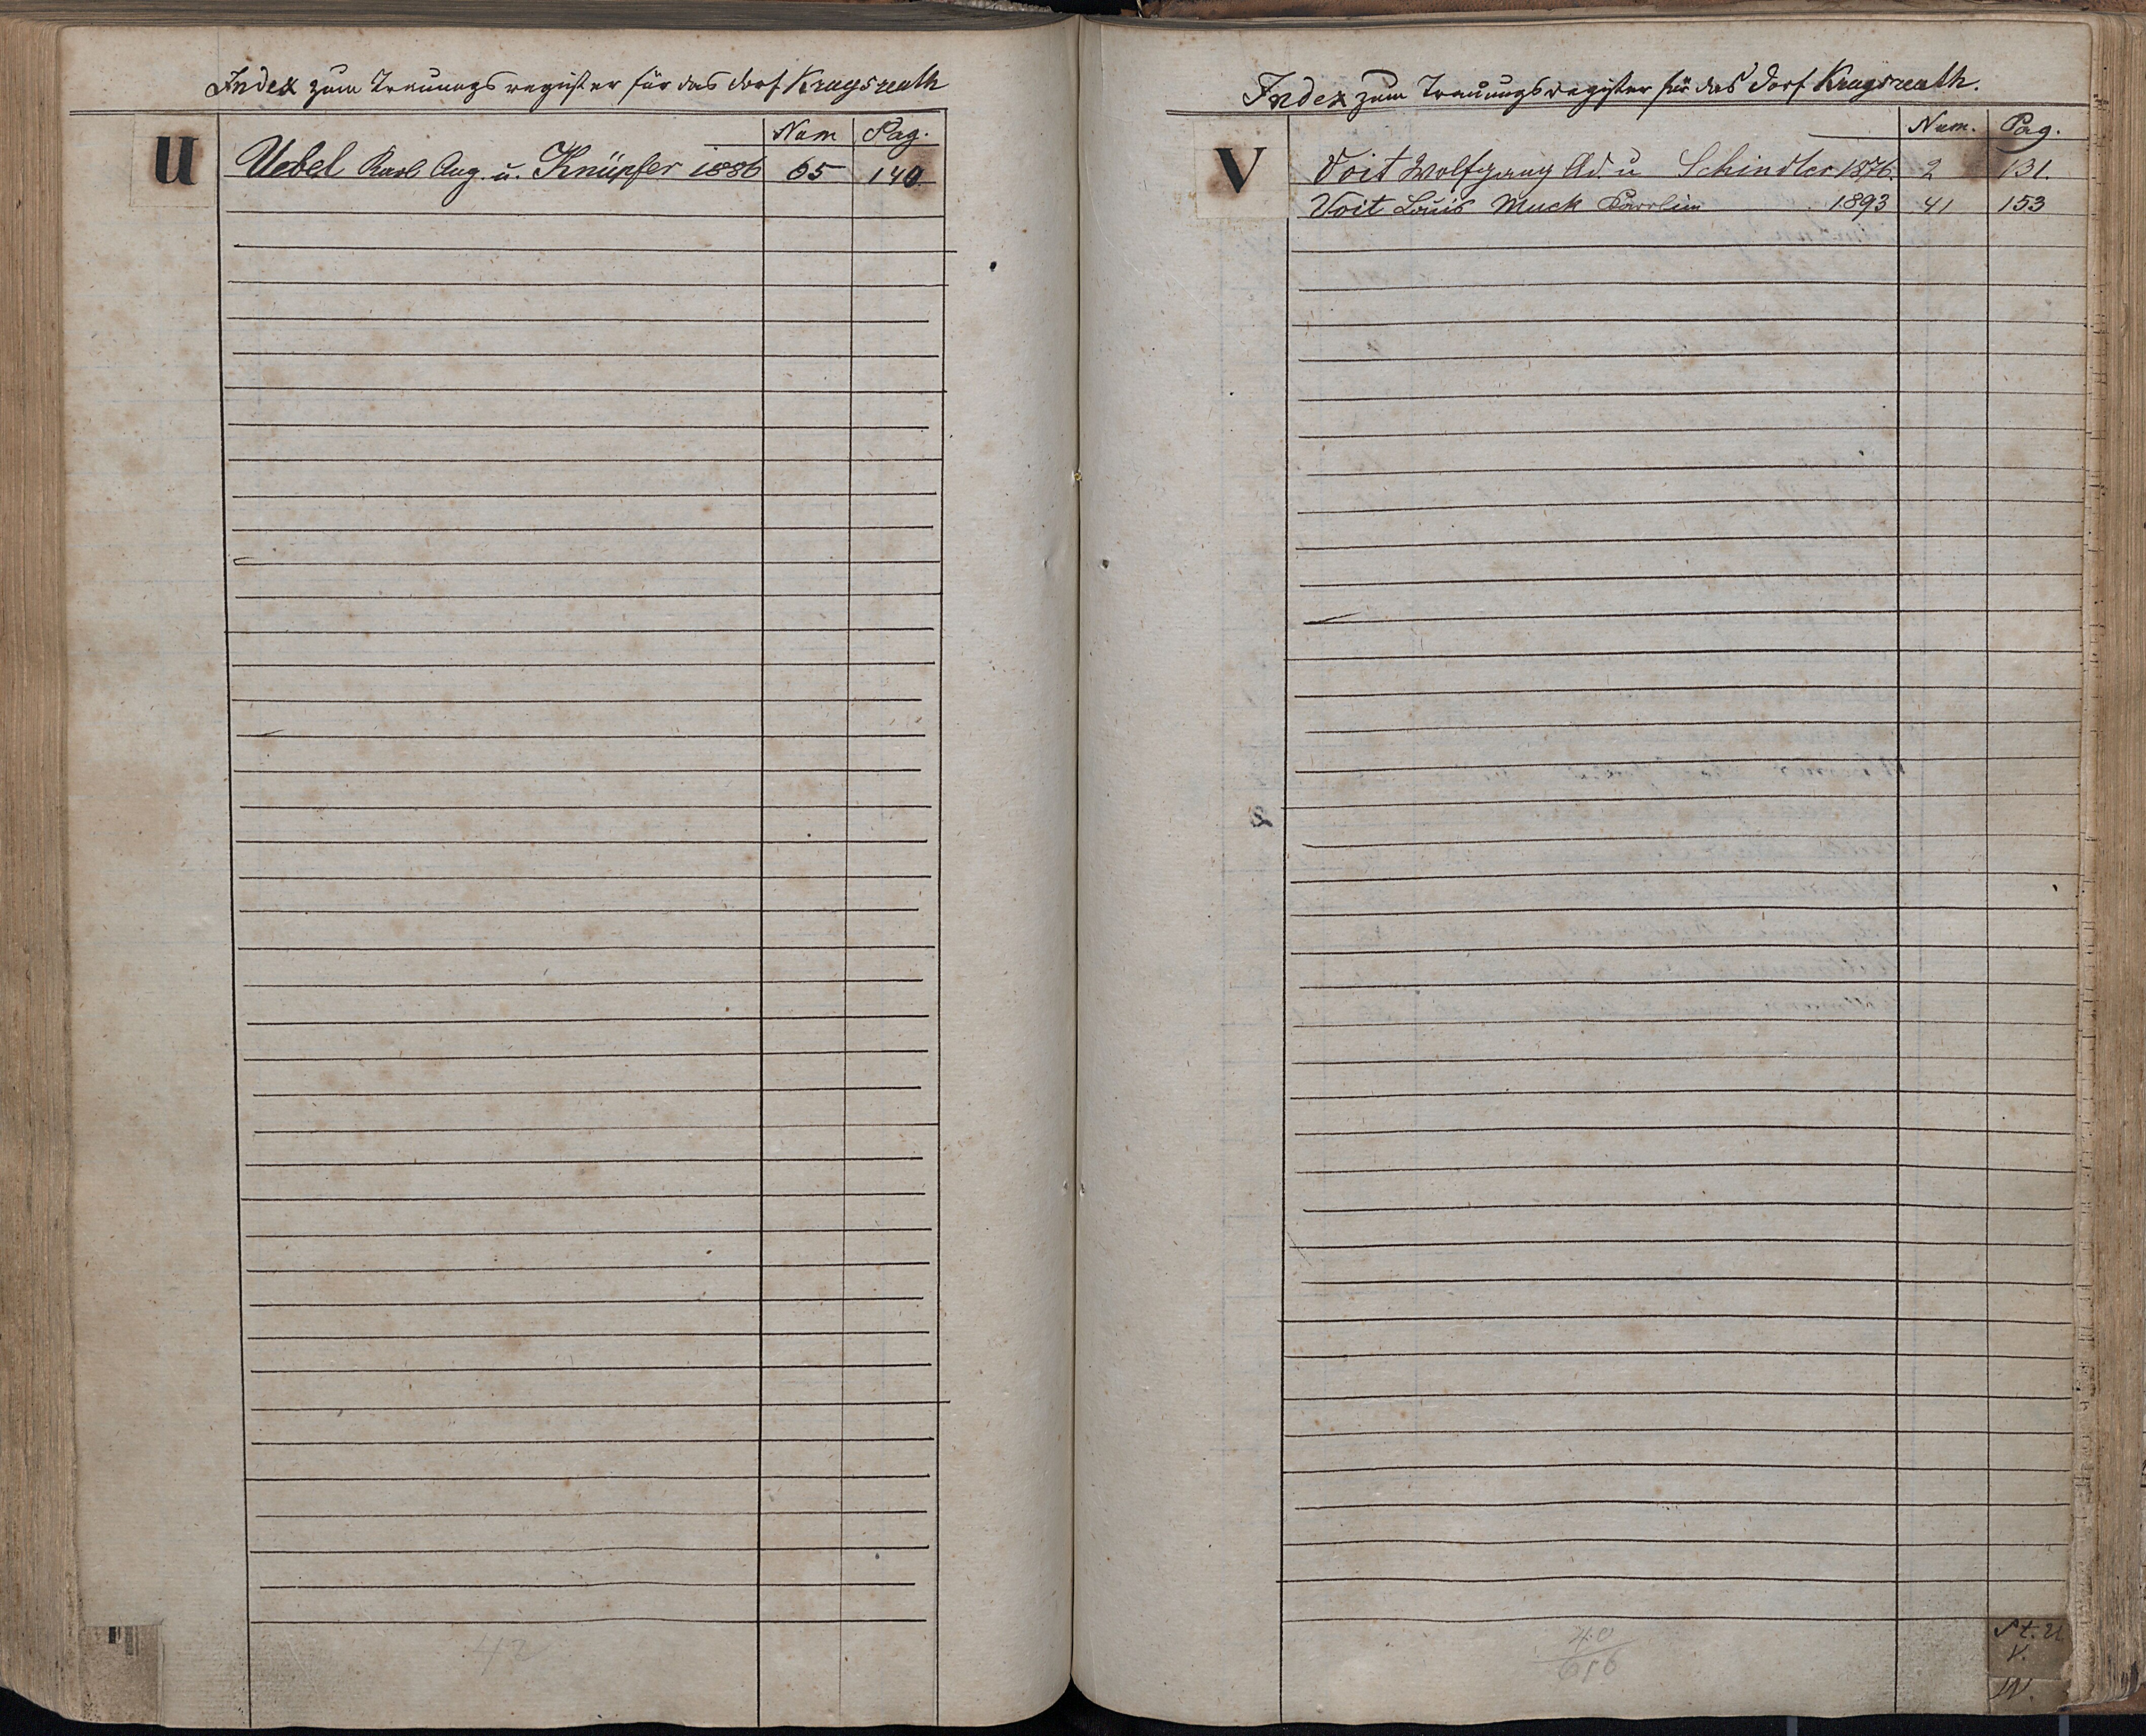 Index zum Trauungsregister für das Dorf Krugsreuth
U
Num Pag.
Uebel Karl Aug. u. Knüpfer 1886 65 140
42
Index zum Trauungsregister für das Dorf Krugsreuth.
V
Num. Pag.
Voit Wolfgang Ad. u Schindler 1876. 2 131.
Voit Louis Muck 1893 41 153
40
686
St. U
V.
W.